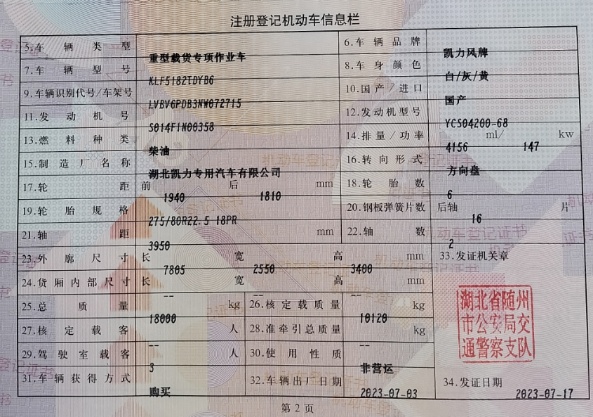 注册登记机动车信息栏
5.车辆类型 重型载货专项作业车 6.车辆品牌 凯力风牌
7.车辆型号 KLF5182TDYD6 8.车身颜色 白/灰/黄
9.车辆识别代号/车架号 LVBV6PDB3NW072715 10.国产/进口 国产
11.发动机号 5014F1N00358 12.发动机型号 YCS04200-68
13.燃料种类 柴油 14.排量/功率 4156 ml/ 147 kw
15.制造厂名称 湖北凯力专用汽车有限公司 16.转向形式 方向盘
17.轮距 前 1940 后 1810 mm 18.轮胎数 6
19.轮胎规格 275/80R22.5 18PR 20.钢板弹簧片数 后轴 16 片
21.轴距 3950 mm 22.轴数 2
23.外廓尺寸 长 7805 宽 2550 高 3400 mm 33.发证机关章
24.货厢内部尺寸 长 -- 宽 -- 高 -- mm
25.总质量 18000 kg 26.核定载质量 10120 kg
27.核定载客 -- 人 28.准牵引总质量 -- kg
29.驾驶室载客 3 人 30.使用性质 非营运
31.车辆获得方式 购买 32.车辆出厂日期 2023-07-03 34.发证日期 2023-07-17
湖北省随州
市公安局交
通警察支队
第2页